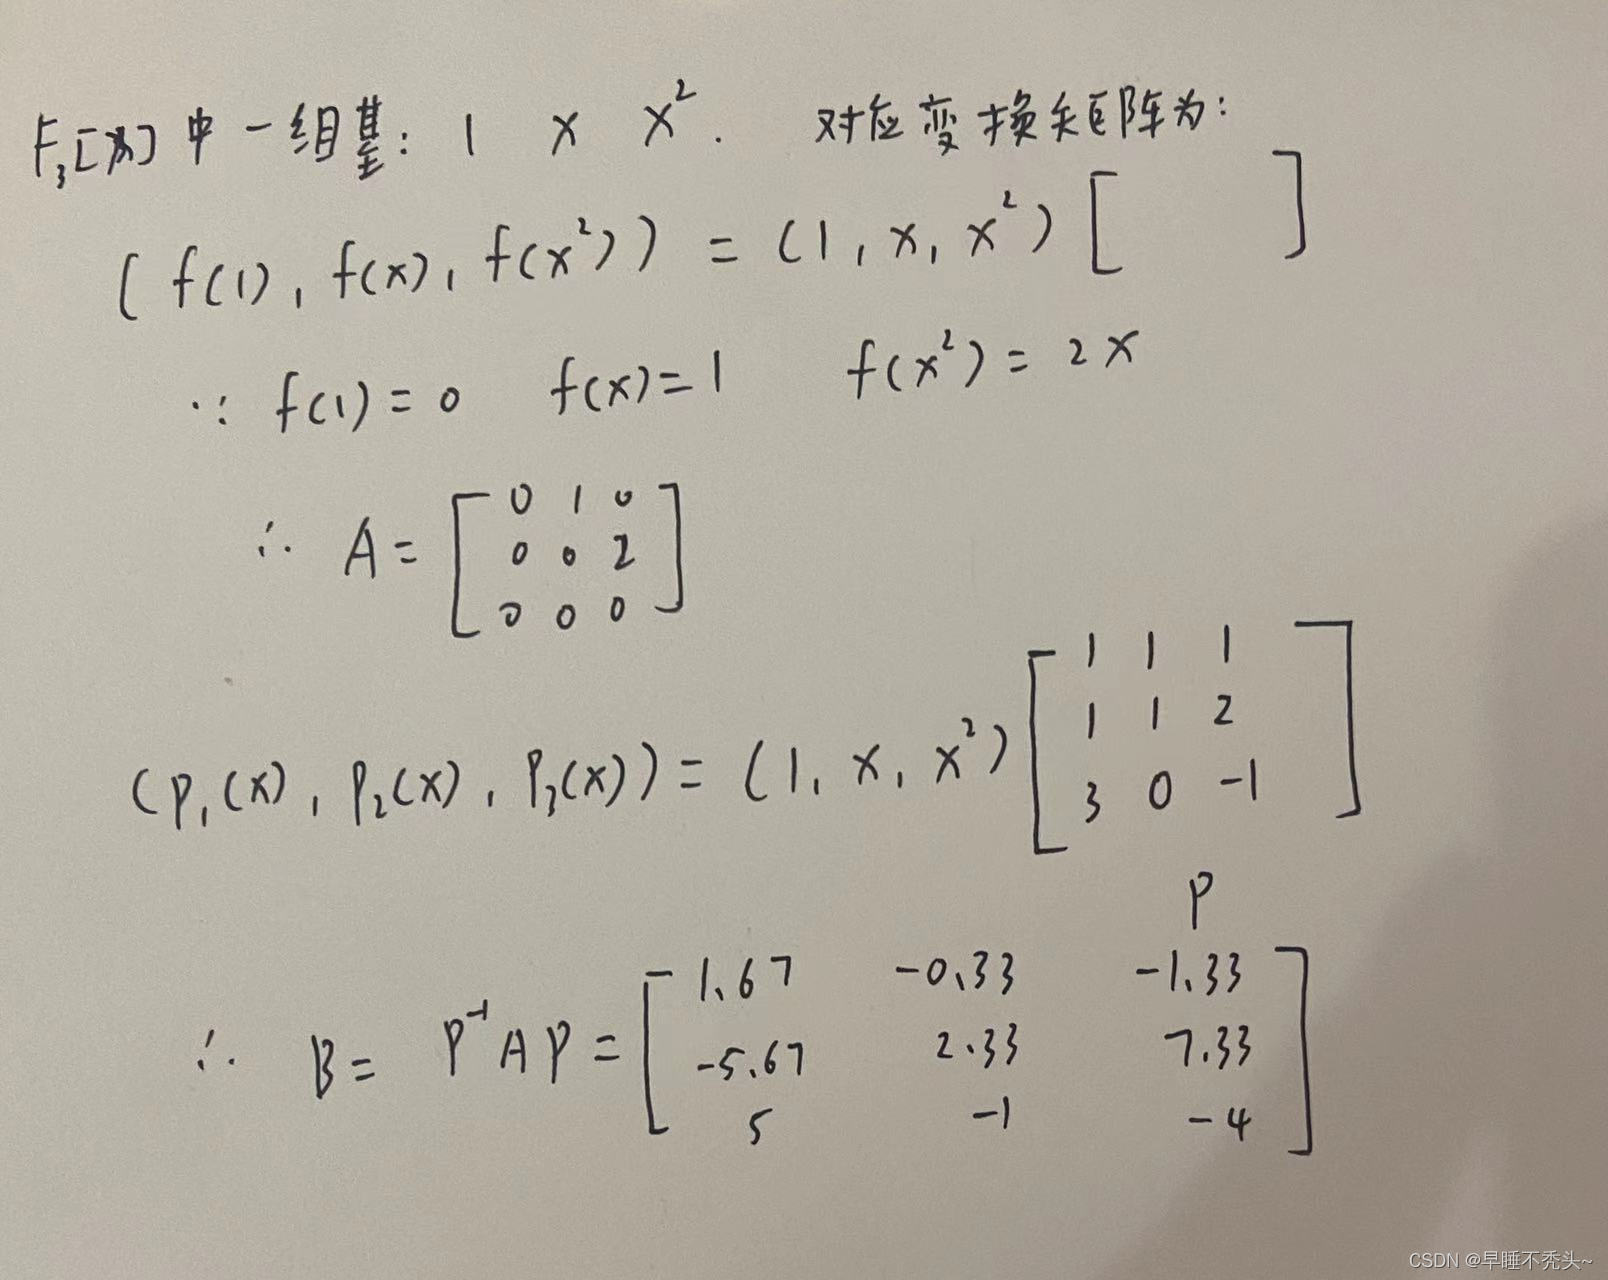 F₃[x] 中一组基: 1 x x². 对应变换矩阵为:
( f(1), f(x), f(x²) ) = (1, x, x²) [ ]
∵ f(1) = 0 f(x) = 1 f(x²) = 2x
∴ A = [
0 1 0
0 0 2
0 0 0
]
(p₁(x), p₂(x), p₃(x)) = (1, x, x²) [
1 1 1
1 1 2
3 0 -1
]
P
∴ B = P⁻¹AP = [
1.67 -0.33 -1.33
-5.67 2.33 7.33
5 -1 -4
]
CSDN @早睡不秃头~